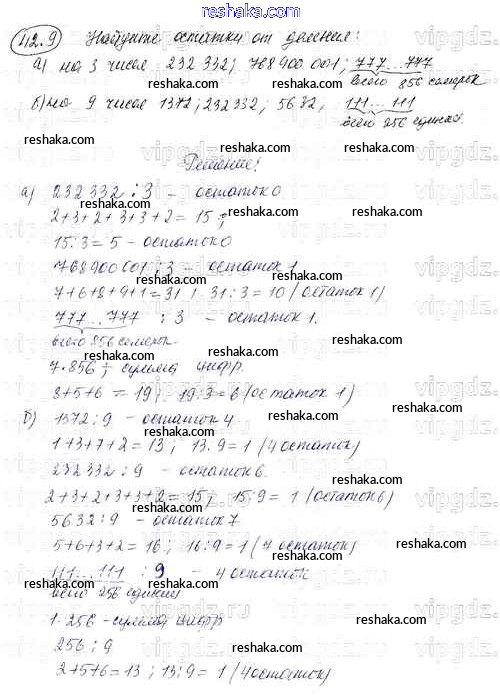 reshaka.com
42.9 Найдите остатки от деления:
а) на 3 числа 232 332; 768 900 001; 777...777
reshaka.com reshaka.com всего 856 семерок
б) на 9 числа 1372; 232332; 5632, 111...111
reshaka.com reshaka.com всего 256 единиц
Решение:
reshaka.com
а) 232332 : 3 – остаток 0
reshaka.com
2+3+2+3+3+2 = 15;
reshaka.com
15:3 = 5 – остаток 0
reshaka.com
768900001 : 3 – остаток 1
reshaka.com
7+6+8+9+1 = 31; 31:3 = 10 (остаток 1)
reshaka.com
777...777 : 3 – остаток 1.
всего 856 семерок reshaka.com
7·856 – сумма цифр.
reshaka.com
8+5+6 = 19; 19:3 = 6 (остаток 1)
reshaka.com
б) 1372 : 9 – остаток 4
reshaka.com
1+3+7+2 = 13; 13:9 = 1 (4 остаток)
reshaka.com
232332 : 9 – остаток 6.
reshaka.com
2+3+2+3+3+2 = 15; 15:9 = 1 (остаток 6)
reshaka.com
5632 : 9 – остаток 7
reshaka.com
5+6+3+2 = 16; 16:9 = 1 (7 остаток)
reshaka.com
111...111 : 9 – 4 остаток
reshaka.com reshaka.com
всего 256 единиц
1·256 – сумма цифр
reshaka.com
256 : 9
reshaka.com
2+5+6 = 13; 13:9 = 1 (4 остаток)
reshaka.com